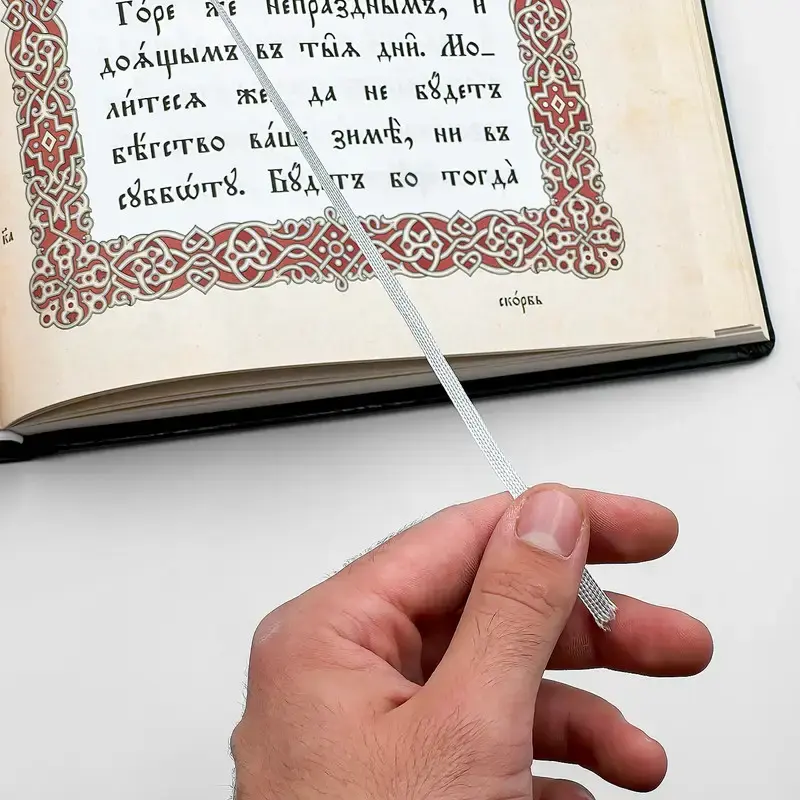 Го́ре же непра́зднымъ, и
доѧ́щымъ въ ты̑ѧ дни̑. Мо_
ли́тесѧ же, да не бꙋ́детъ
бѣ́гство ва́ше зимѣ̀, ни въ
сꙋббѡ́тꙋ. Бꙋ́детъ бо тогда̀
ско́рбь